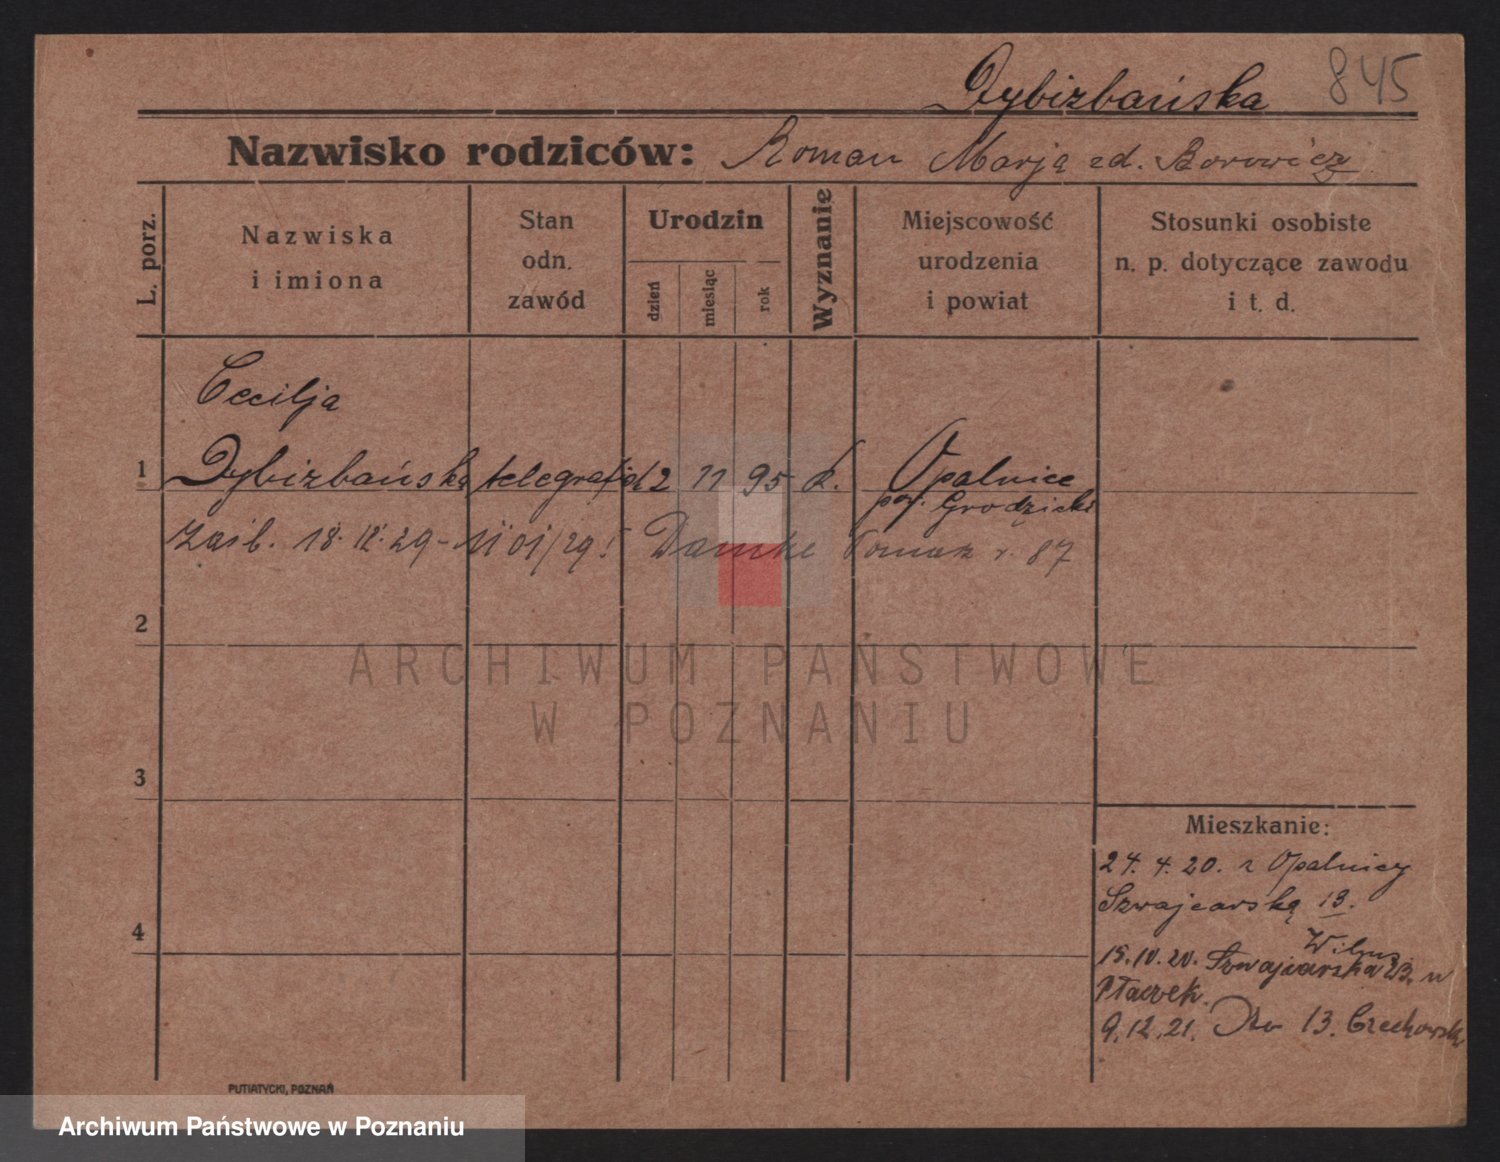 845
Dybizbańska
Nazwisko rodziców: Roman Marją zd. Borowicz
L. porz.
Nazwiska
i imiona
Stan
odn.
zawód
Urodzin
dzień
miesiąc
rok
Wyznanie
Miejscowość
urodzenia
i powiat
Stosunki osobiste
n. p. dotyczące zawodu
i t. d.
Cecilja
1 Dybizbańska telegrafist 2 11 95 k. Opalnice
pow. Grodziski
Zaśl. 18. 12. 29 - 1101/29! Tomasz r. 87
2
ARCHIWUM PAŃSTWOWE
W POZNANIU
3
Mieszkanie:
24. 4. 20. z Opalnicy
Szwajcarską 13.
4
15. 10. 20. Szwajcarska 23. u
Ptaczek.
9. 12. 21. 13. Czechowsk
PUTIATYCKI, POZNAŃ
Archiwum Państwowe w Poznaniu